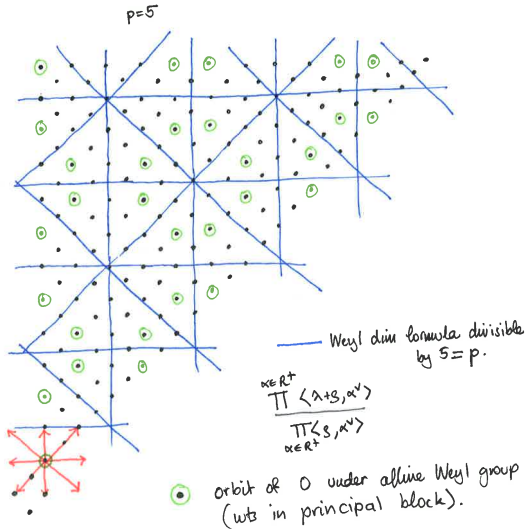 p=5
Weyl dim formula divisible
by 5=p.
∏ <λ+ρ,α^∨>
α∈R^+
∏<ρ,α^∨>
α∈R^+
orbit of 0 under affine Weyl group
(wts in principal block).